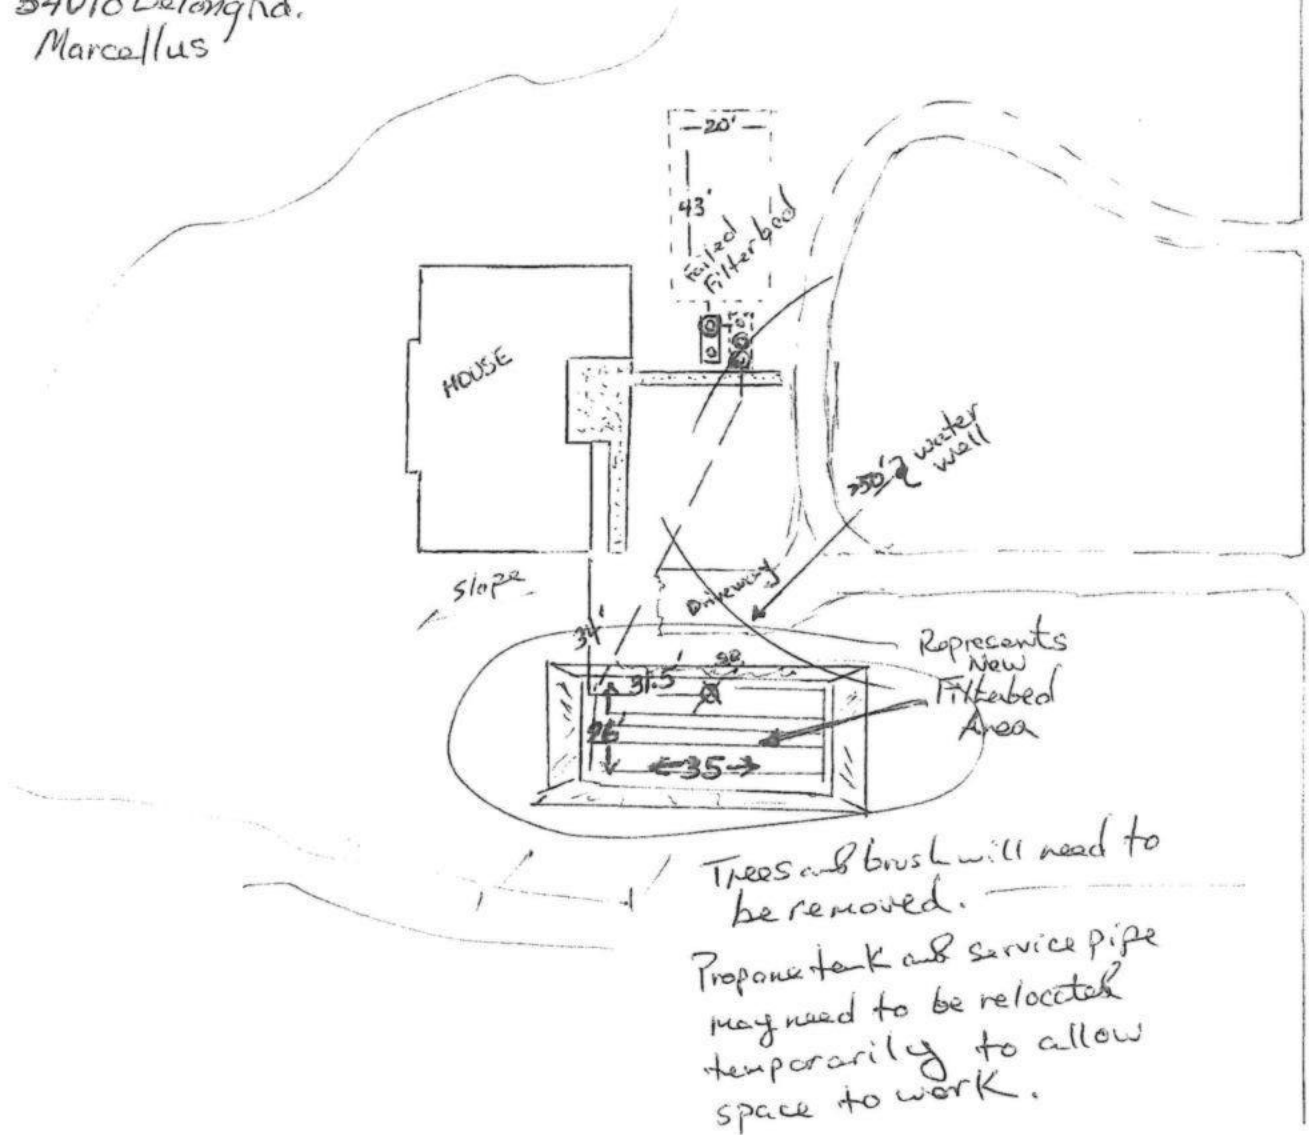 Marcellus
20'
43'
Failed
Filterbed
HOUSE
>50' water
well
Slope
Driveway
34'
31.5'
26'
35
Represents
New
Filterbed
Area
Trees and brush will need to
be removed.
Propane tank and service pipe
may need to be relocated
temporarily to allow
space to work.